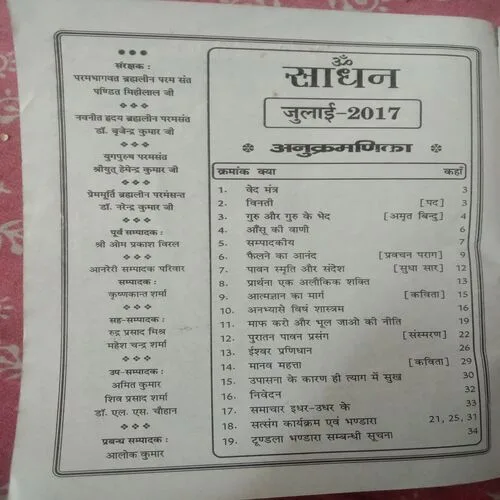 संरक्षक :
परमभागवत ब्रह्मलीन परम संत
पण्डित मिहीलाल जी
नवनीत हृदय ब्रह्मलीन परमसंत
डॉ. बृजेन्द्र कुमार जी
युगपुरुष परमसंत
श्रीयुत् हेमेन्द्र कुमार जी
प्रेममूर्ति ब्रह्मलीन परमंसन्त
डॉ. नरेन्द्र कुमार जी
पूर्व सम्पादक :
श्री ओम प्रकाश विरल
आनरेरी सम्पादक परिवार
सम्पादक :
कृष्णकान्त शर्मा
सह-सम्पादक :
रुद्र प्रसाद मिश्र
महेश चन्द्र शर्मा
उप-सम्पादक :
अमित कुमार
शिव प्रसाद शर्मा
डॉ. एल. एस. चौहान
प्रबन्ध सम्पादक :
आलोक कुमार
ॐ
साधन
जुलाई-2017
अनुक्रमणिका
क्रमांक क्या कहां
1. वेद मंत्र 3
2. विनती [पद] 3
3. गुरु और गुरु के भेद [अमृत बिन्दु] 4
4. आँसू की वाणी 6
5. सम्पादकीय 7
6. फैलने का आनंद [प्रवचन पराग] 9
7. पावन स्मृति और संदेश [सुधा सार] 12
8. प्रार्थना एक अलौकिक शक्ति 13
9. आत्मज्ञान का मार्ग [कविता] 15
10. अनभ्यासे विषं शास्त्रम 16
11. माफ करो और भूल जाओ की नीति 19
12. पुरातन पावन प्रसंग [संस्मरण] 22
13. ईश्वर प्रणिधान 26
14. मानव महत्ता [कविता] 29
15. उपासना के कारण ही त्याग में सुख 30
16. निवेदन 32
17. समाचार इधर-उधर के 33
18. सत्संग कार्यक्रम एवं भण्डारा 21, 25, 31
19. टूण्डला भण्डारा सम्बन्धी सूचना 34